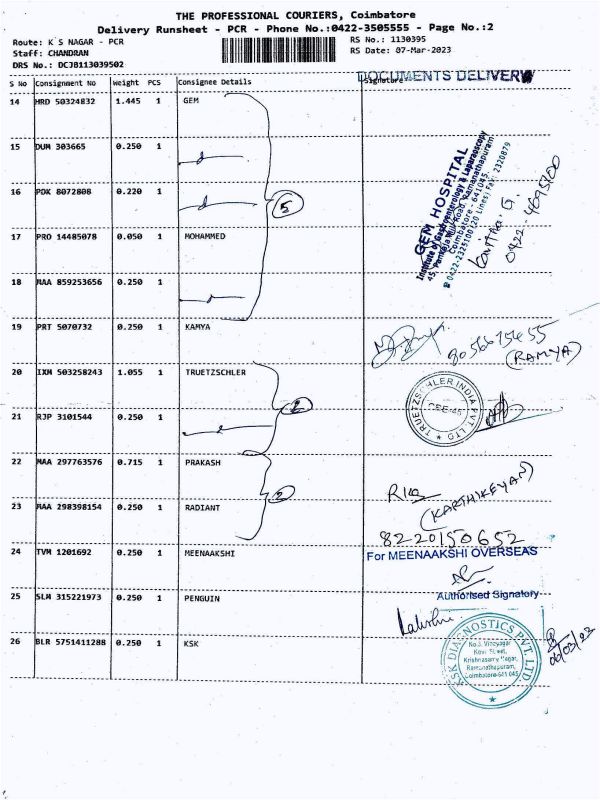 THE PROFESSIONAL COURIERS, Coimbatore
Delivery Runsheet - PCR - Phone No.:0422-3505555 - Page No.:2
Route: K S NAGAR - PCR
RS No.: 1130395
Staff: CHANDRAN
RS Date: 07-Mar-2023
DRS No.: DCJB113039502
DOCUMENTS DELIVERY
S No Consignment No Weight PCS Consignee Details Signature
14 HRD 50324832 1.445 1 GEM
15 DUM 303665 0.250 1
16 PDK 8072808 0.220 1
5
17 PRO 14485078 0.050 1 MOHAMMED
18 MAA 859253656 0.250 1
GEM HOSPITAL
Institute of Gastroenterology & Laparoscopy
45, Pankaja Mill Road, Ramanathapuram
Coimbatore - 641 045.
0422-2325100 (20 Lines) Fax: 2320879
Kavitha. G.
0422
19 PRT 5070732 0.250 1 KAMYA
8056675455
(RAMYA)
20 IXM 503258243 1.055 1 TRUETZSCHLER
2
TRUETZSCHLER INDIA PVT. LTD
CBE-45
21 RJP 3101544 0.250 1
22 MAA 297763576 0.715 1 PRAKASH
2
(KARTHIKEYAN)
23 MAA 298398154 0.250 1 RADIANT
8220150652
24 TVM 1201692 0.250 1 MEENAAKSHI
For MEENAAKSHI OVERSEAS
Authorised Signatory
25 SLM 315221973 0.250 1 PENGUIN
Lakshmi
26 BLR 5751411288 0.250 1 KSK
KSK DIAGNOSTICS PVT. LTD.
No.3, Vinayagar
Kovil Street,
Krishnasamy Nagar,
Ramanathapuram,
Coimbatore-641 045